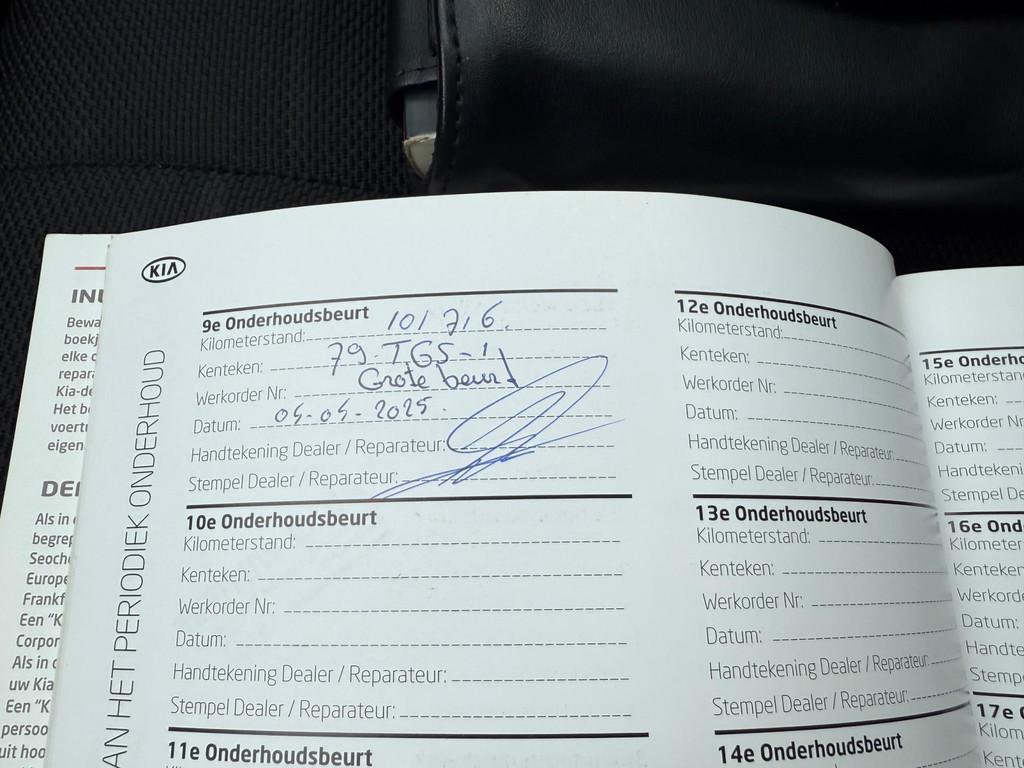 KIA
AN HET PERIODIEK ONDERHOUD
9e Onderhoudsbeurt
Kilometerstand: 101716.
Kenteken: 79-TGS-1
Werkorder Nr: Grote beurt
Datum: 04-04-2025.
Handtekening Dealer / Reparateur:
Stempel Dealer / Reparateur:
10e Onderhoudsbeurt
Kilometerstand:
Kenteken:
Werkorder Nr:
Datum:
Handtekening Dealer / Reparateur:
Stempel Dealer / Reparateur:
11e Onderhoudsbeurt
12e Onderhoudsbeurt
Kilometerstand:
Kenteken:
Werkorder Nr:
Datum:
Handtekening Dealer / Reparateur:
Stempel Dealer / Reparateur:
13e Onderhoudsbeurt
Kilometerstand:
Kenteken:
Werkorder Nr:
Datum:
Handtekening Dealer / Reparateur:
Stempel Dealer / Reparateur:
14e Onderhoudsbeurt
15e Onderho
Kilometerstan
Kenteken:
Werkorder Nr
Datum:
Handtekeni
Stempel De
16e Ond
Kilometer
Kenteken
Werkord
Datum:
Handte
Stemp
17e
Kilom
Kent
INL
Bewa
boekj
elke
repar
Kia-de
Het b
voertu
eigen
DEI
Als in
begrep
Seoch
Europe
Frankf
Een "K
Corpor
Als in
uw Kia
Een "K
persoo
uit hoo